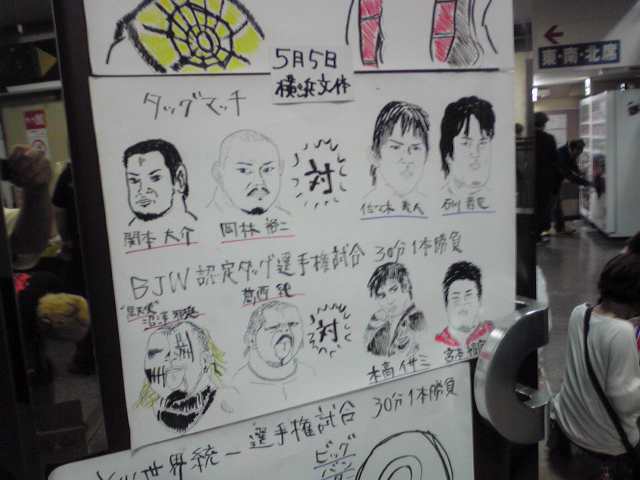 5月5日
横浜文体
東・南・北席
タッグマッチ
対
関本 大介
岡林 裕二
佐々木 義人
石川 晋也
BJW認定タッグ選手権試合 30分1本勝負
"黒天使"
沼澤 邪鬼
葛西 純
対
本高 伊三
宮本 裕向
世界統一選手権試合 30分1本勝負
ビッグ